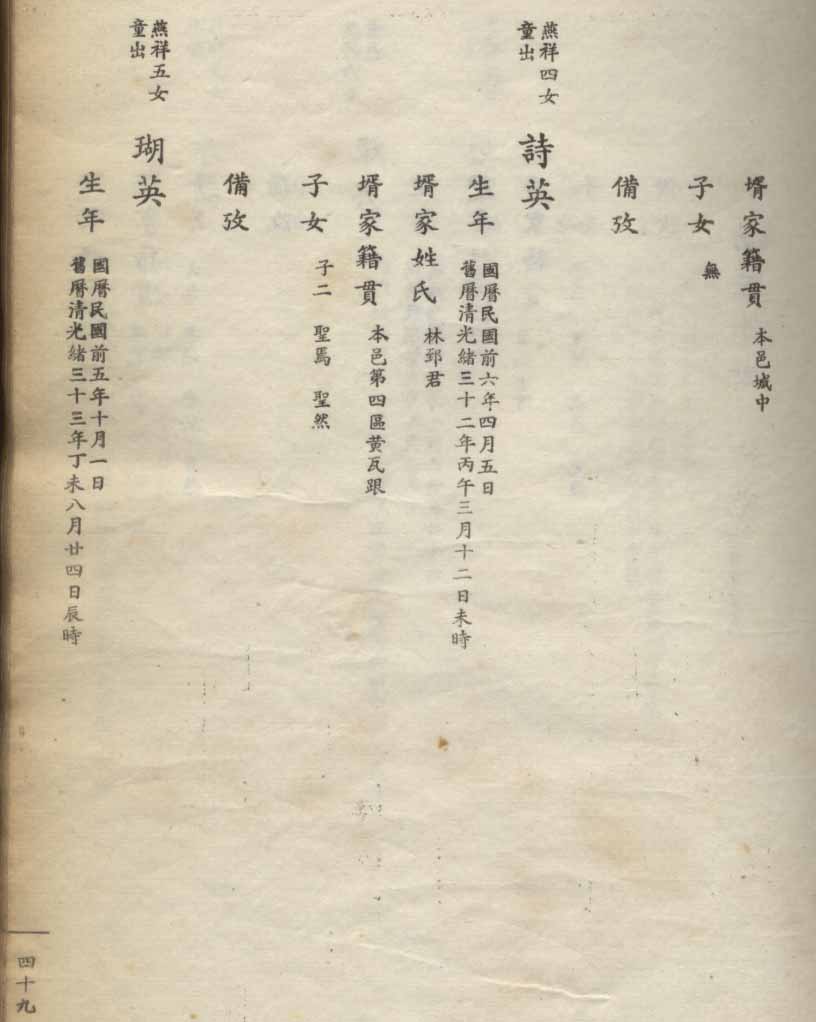 壻家籍貫 本邑城中
子女 無
備攷
燕祥四女
童出
詩英
生年 國曆民國前六年四月五日
舊曆清光緒三十二年丙午三月十二日未時
壻家姓氏 林郅君
壻家籍貫 本邑第四區黄瓦跟
子女 子二 聖焉 聖然
備攷
燕祥五女
童出
瑚英
生年 國曆民國前五年十月一日
舊曆清光緒三十三年丁未八月廿四日辰時
四十九